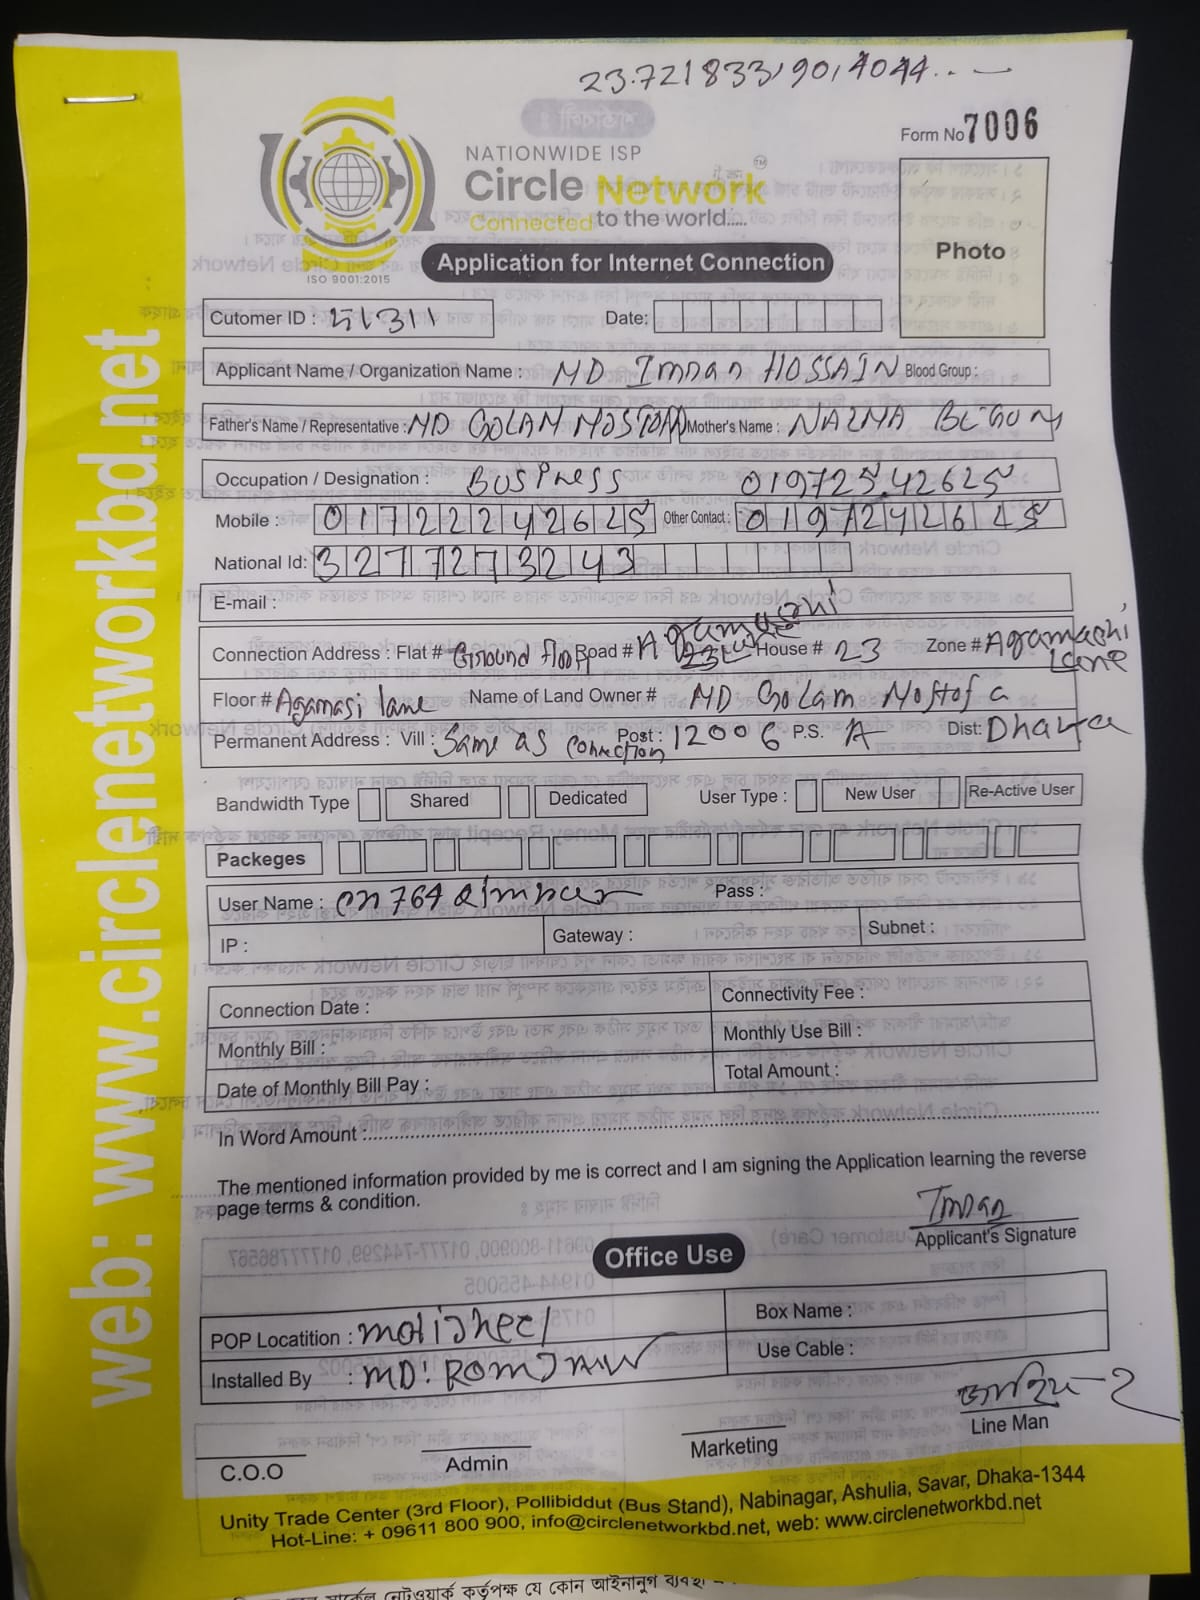 23.721833,90,4044...—
Form No 7006
NATIONWIDE ISP
Circle Network
TM
Connected to the world.....
ISO 9001:2015
Application for Internet Connection
Photo
Cutomer ID :
Date:
Applicant Name / Organization Name : MD Imran HOSSAIN Blood Group :
Father's Name / Representative : MD GOLAM MOSTOFA Mother's Name : NAZMA BEGUM
Occupation / Designation :
Mobile : 01722242625 Other Contact :
National Id: 3277273243
E-mail :
Connection Address : Flat # Ground floor Road # House # 23 Zone # Agamashi Lane
Floor # Agamasi lane Name of Land Owner # MD Golam Mostofa
Permanent Address : Vill : Same as connection Post : 12006 P.S. A Dist: Dhaka
Bandwidth Type Shared Dedicated User Type : New User Re-Active User
Packeges
User Name : Pass :
IP : Gateway : Subnet :
Connection Date : Connectivity Fee :
Monthly Bill : Monthly Use Bill :
Date of Monthly Bill Pay : Total Amount :
In Word Amount :
The mentioned information provided by me is correct and I am signing the Application learning the reverse
page terms & condition.
Imran
Applicant's Signature
Office Use
POP Locatition : motijheel Box Name :
Installed By : MD: ROMJAN Use Cable :
Line Man
C.O.O Admin Marketing
Unity Trade Center (3rd Floor), Pollibiddut (Bus Stand), Nabinagar, Ashulia, Savar, Dhaka-1344
Hot-Line: + 09611 800 900, info@circlenetworkbd.net, web: www.circlenetworkbd.net
web: www.circlenetworkbd.net